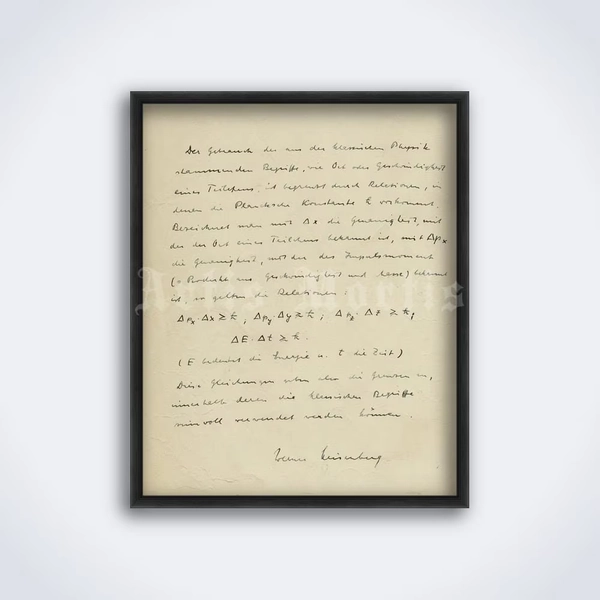 Der Gebrauch der aus der klassischen Physik
stammenden Begriffe, wie Ort oder Geschwindigkeit
eines Teilchens ist begrenzt durch Relationen, in
denen die Plancksche Konstante ħ vorkommt.
Bezeichnet man mit Δx die Genauigkeit, mit
der der Ort eines Teilchens bekannt ist, mit Δpₓ
die Genauigkeit, mit der das Impulsmoment
(= Produkt aus Geschwindigkeit und Masse) bekannt
ist, so gelten die Relationen
Δpₓ·Δx ≳ ħ, Δp_y·Δy ≳ ħ; Δp_z·Δz ≳ ħ,
ΔE·Δt ≳ ħ.
(E bedeutet die Energie u. t die Zeit)
Diese Gleichungen geben also die Grenzen an,
innerhalb deren die klassischen Begriffe
sinnvoll verwendet werden können.
Werner Heisenberg